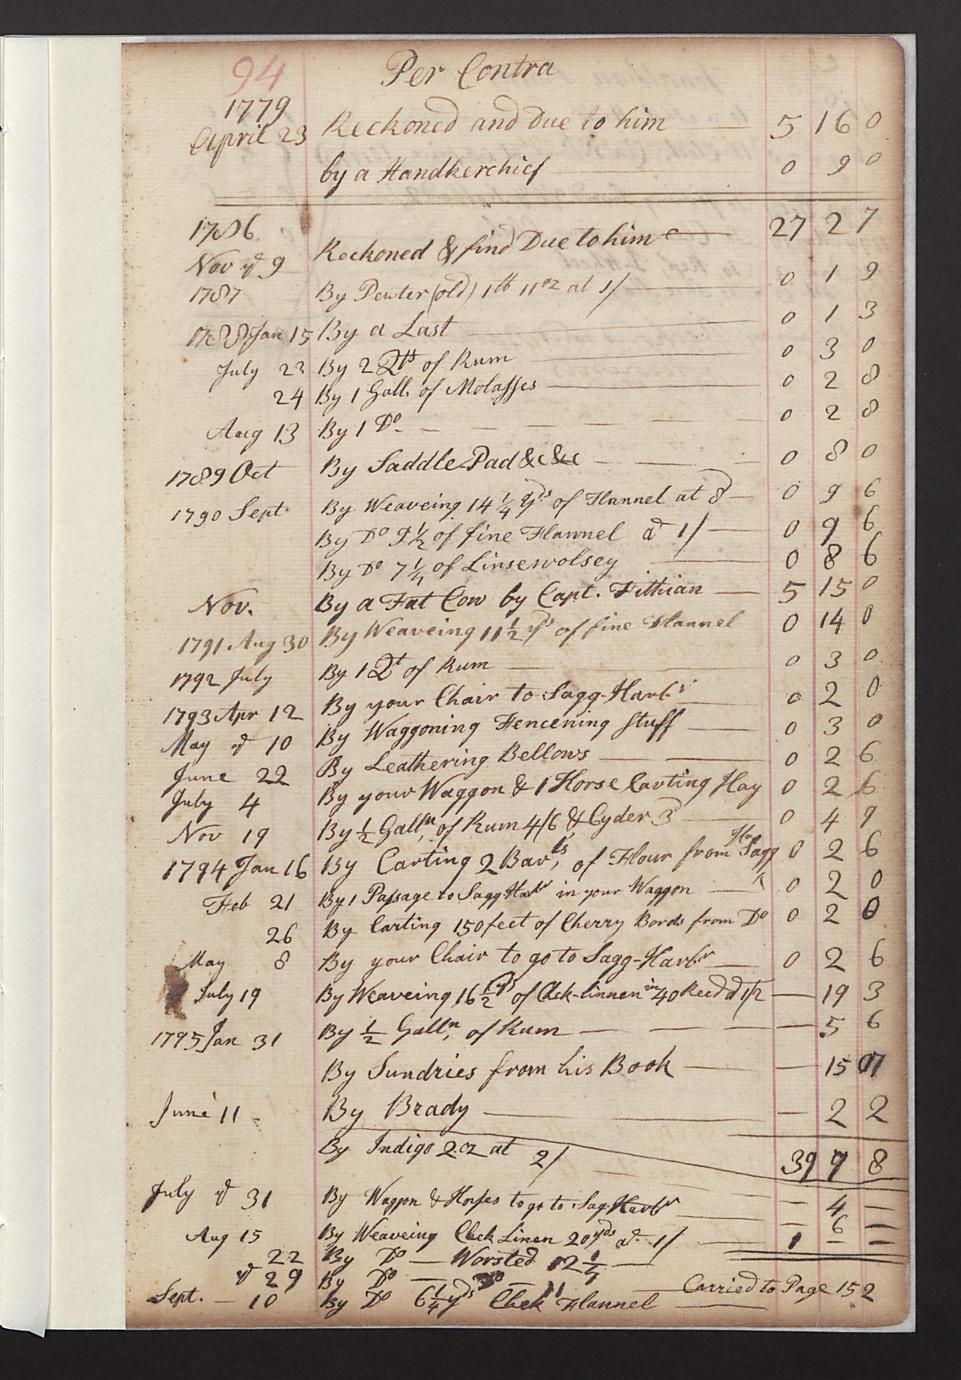 94 Per Contra
1779
April 23 Reckoned and Due to him 5 16 0
by a Handkerchief 0 9 0
1786
Nov ye 9 Reckoned & find Due to him 27 2 7
1787 By Pewter (old) 1lb 11oz at 1/ 0 1 9
1788 Jan 15 By a Last 0 1 3
July 23 By 2 Qts of Rum 0 3 0
24 By 1 Gall. of Molasses 0 2 8
Aug 13 By 1 Do 0 2 8
1789 Oct By Saddle Pad &c &c 0 8 0
1790 Sept. By Weaveing 14 1/4 yds of Flannel at 8 0 9 6
By Do 9 1/2 of fine Flannel at 1/ 0 9 6
By Do 7 1/4 of Linsewolsey 0 8 6
Nov. By a Fat Cow by Capt. Fithian 5 15 0
1791 Aug 30 By Weaveing 11 1/2 yds of fine Flannel 0 14 0
1792 July By 1 Qt of Rum 0 3 0
1793 Apr 12 By your Chair to Sagg-Harbr 0 2 0
May ye 10 By Waggoning Fencening stuff 0 3 0
June 22 By Leathering Bellows 0 2 6
July 4 By your Waggon & 1 Horse Carting Hay 0 2 6
Nov 19 By 1/2 Galln, of Rum 4/6 & Cyder 3 0 4 9
1794 Jan 16 By Carting 2 Barls, of Flour from Sagg 0 2 6
Feb 21 By 1 Passage to Sagg Harbr in your Waggon 0 2 0
26 By Carting 150 feet of Cherry Bords from Do 0 2 0
May 8 By your Chair to go to Sagg-Harbr 0 2 6
July 19 By Weaveing 16 1/2 yds of Chek-linnen in 40 Reed at 1/2 19 3
1795 Jan 31 By 1/2 Galln, of Rum 5 6
By Sundries from his Book 15 07
June 11 By Brady 2 2
By Indigo 2 oz at 2/ 39 7 8
July ye 31 By Waggon & Horses to go to Sag Harbr 4
Aug 15 By Weaveing Chek Linen 20 yds at 1/ 1
22 By Do Worsted 12 1/2
ye 29 By Do
Carried to Page 152
Sept. 10 By Do 6 1/4 yds Chek Flannel